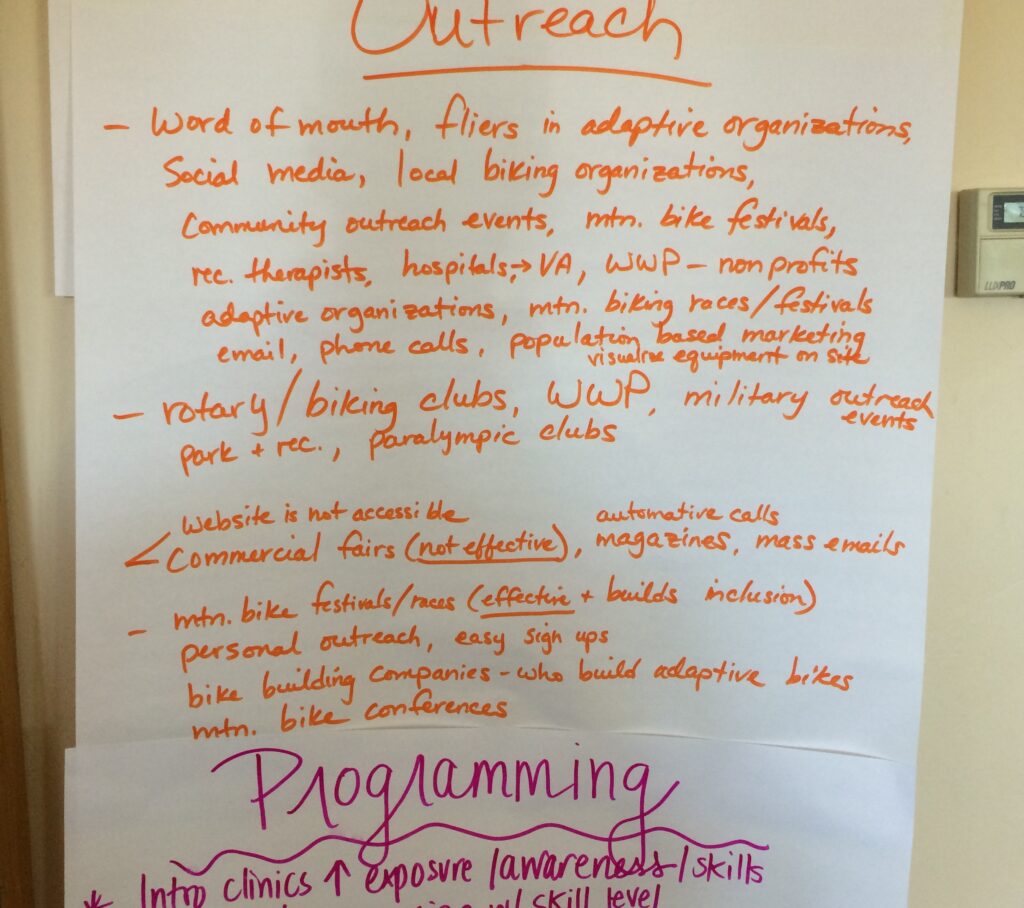 Outreach
- Word of mouth, fliers in adaptive organizations,
Social media, local biking organizations,
Community outreach events, mtn. bike festivals,
rec. therapists, hospitals,→ VA, WWP - nonprofits
adaptive organizations, mtn. biking races/festivals
email, phone calls, population based marketing
visualize equipment on site
- rotary/biking clubs, WWP, military outreach
events
park + rec., paralympic clubs
website is not accessible
automative calls
< Commercial fairs (not effective), magazines, mass emails
- mtn. bike festivals/races (effective + builds inclusion)
personal outreach, easy sign ups
bike building companies - who build adaptive bikes
mtn. bike conferences
Programming
* Intro clinics ↑ exposure /awareness/skills
w/ skill level
LUXPRO